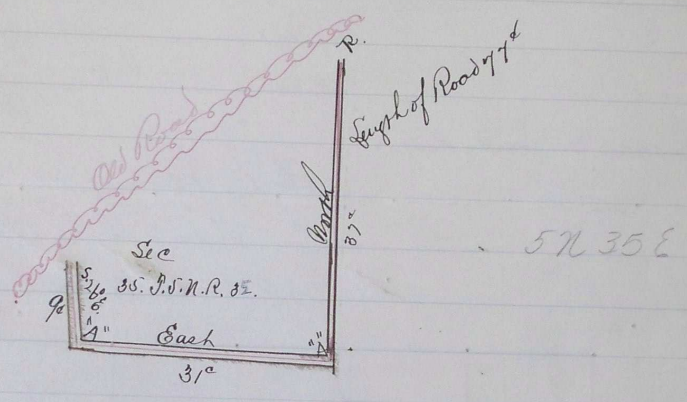 R.
Length of Road 77c
Old Road
North
37c
5N 35E
Sec
35. T.5.N.R. 35.
9c
S.
6°
"A"
East
"A"
31c